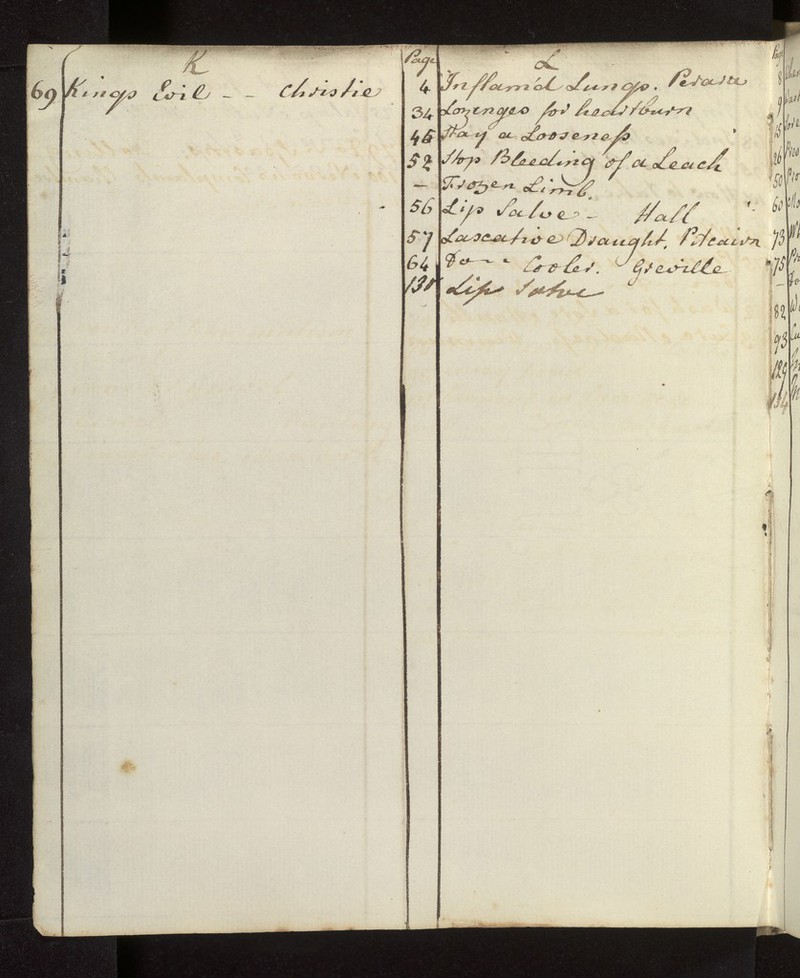 K
69 Kings Evil - - Christie
Page L
4 Inflam'd Lungs.
34 Lozenges for heartburn
46 Stay a Looseness
52 Stop Bleeding of a Leach
— Frozen Limb.
56 Lip Salve - Hall
57 Laxcative Draught. Pitcairn
64 Do - - Cooler. Greville
130 Lip Salve
Page
8
9
15
26
50
60
73
75
—
82
93
129
134